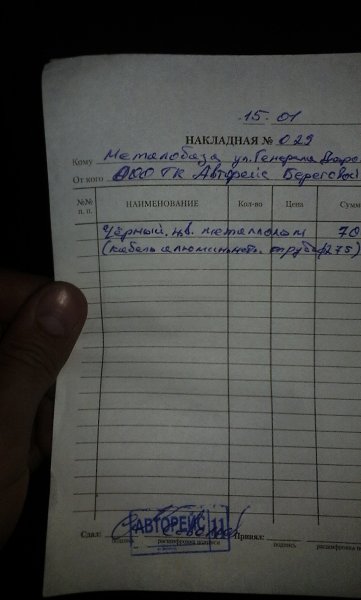 15.01
НАКЛАДНАЯ № 029
Кому Металобаза ул. Генерала
От кого ООО ТК Авторейс Береговой
№№ п. п. НАИМЕНОВАНИЕ Кол-во Цена Сумм
Чёрный, цв. металлолом 70
(кабель алюминь 275)
Сдал: АВТОРЕЙС 11 Принял:
подпись расшифровка подписи подпись расшифровка п